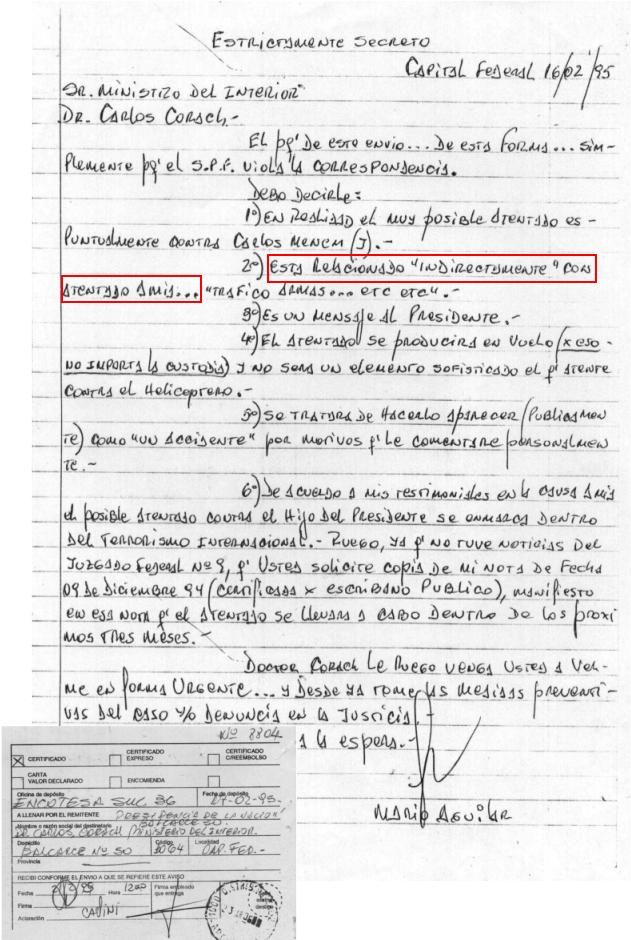 ESTRICTAMENTE SECRETO
CAPITAL FEDERAL 16/02/95
SR. MINISTRO DEL INTERIOR
DR. CARLOS CORACH.-
EL pq' DE este envio... DE esta FORMA... SIM-
PLEMENTE pq' el S.P.F. VIOLA LA CORRESPONDENCIA.
DEBO DECIRLE:
1º) EN REALIDAD EL MUY POSIBLE ATENTADO ES-
PUNTUALMENTE CONTRA CARLOS MENEM (J).-
2º) ESTA RELACIONADO "INDIRECTAMENTE" CON
ATENTADO AMIA... "TRAFICO ARMAS... ETC ETC".-
3º) ES UN MENSAJE AL PRESIDENTE.-
4º) EL ATENTADO SE PRODUCIRA EN VUELO (x eso-
NO IMPORTA LA CUSTODIA) Y NO SERA UN ELEMENTO SOFISTICADO EL q' ATENTE
CONTRA EL HELICOPTERO.-
5º) SE TRATARA DE HACERLO APARECER (PUBLICAMEN
TE) COMO "UN ACCIDENTE" POR MOTIVOS q' LE COMENTARE PERSONALMEN
TE.-
6º) DE ACUERDO A MIS TESTIMONIALES EN LA CAUSA AMIA
EL POSIBLE ATENTADO CONTRA EL HIJO DEL PRESIDENTE SE ENMARCA DENTRO
DEL TERRORISMO INTERNACIONAL.- RUEGO, YA q' NO TUVE NOTICIAS DEL
JUZGADO FEDERAL Nº 9, q' USTED SOLICITE COPIA DE MI NOTA DE FECHA
09 DE DICIEMBRE 94 (CERTIFICADA x ESCRIBANO PUBLICO), MANIFIESTO
EN ESA NOTA q' EL ATENTADO SE LLEVARA A CABO DENTRO DE LOS PROXI
MOS TRES MESES.-
DOCTOR CORACH LE RUEGO VENGA USTED A VER-
ME EN FORMA URGENTE... Y DESDE YA TOME LAS MEDIDAS PREVENTI-
VAS DEL CASO Y/O DENUNCIA EN LA JUSTICIA.-
A LA ESPERA.-
MARIO AGUILAR
Nº 8804
X CERTIFICADO
CERTIFICADO EXPRESO
CERTIFICADO C/REEMBOLSO
CARTA VALOR DECLARADO
ENCOMIENDA
Oficina de depósito
Fecha de depósito
ENCOTESA SUC 36
-02-95.
A LLENAR POR EL REMITENTE
PRESIDENCIA DE LA NACION
BALCARCE 50.
Nombre o razón social del destinatario
DR CARLOS CORACH MINISTERIO DEL INTERIOR.
Domicilio
Código
Localidad
BALCARCE Nº 50
1064
CAP. FED.-
Provincia
RECIBI CONFORME EL ENVIO A QUE SE REFIERE ESTE AVISO
Fecha
95
Hora 1200
Firma empleado que entrega
Firma
Aclaración
CADINI